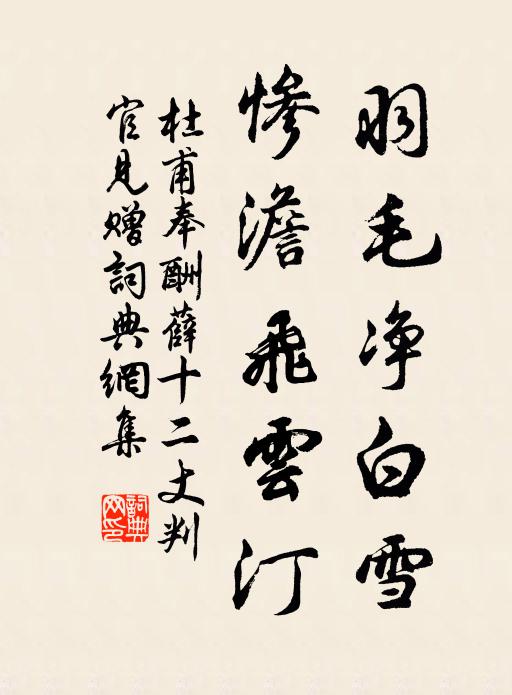 羽毛净白雪
慘澹飛雲汀
杜甫奉酬薛十二丈判
官見贈詞典網集
詞典
网印